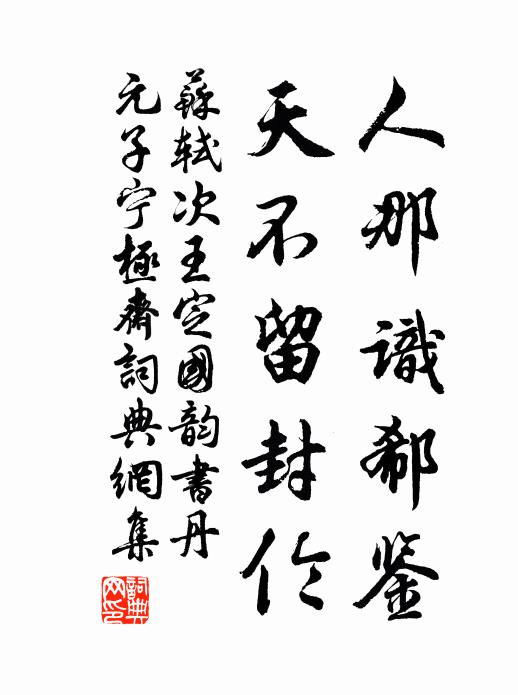 人那識郗鑒
天不留封伦
蘇軾次王定國韵書丹
元子宁極齋詞典網集
詞典網印